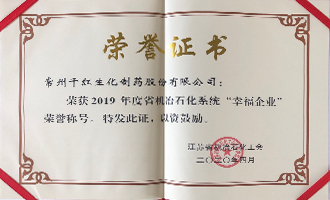 荣誉证书
常州千红生化制药股份有限公司：
荣获 2019 年度省机冶石化系统“幸福企业”
荣誉称号。特发此证，以资鼓励。
江苏省机冶石化工会
二〇二〇年四月